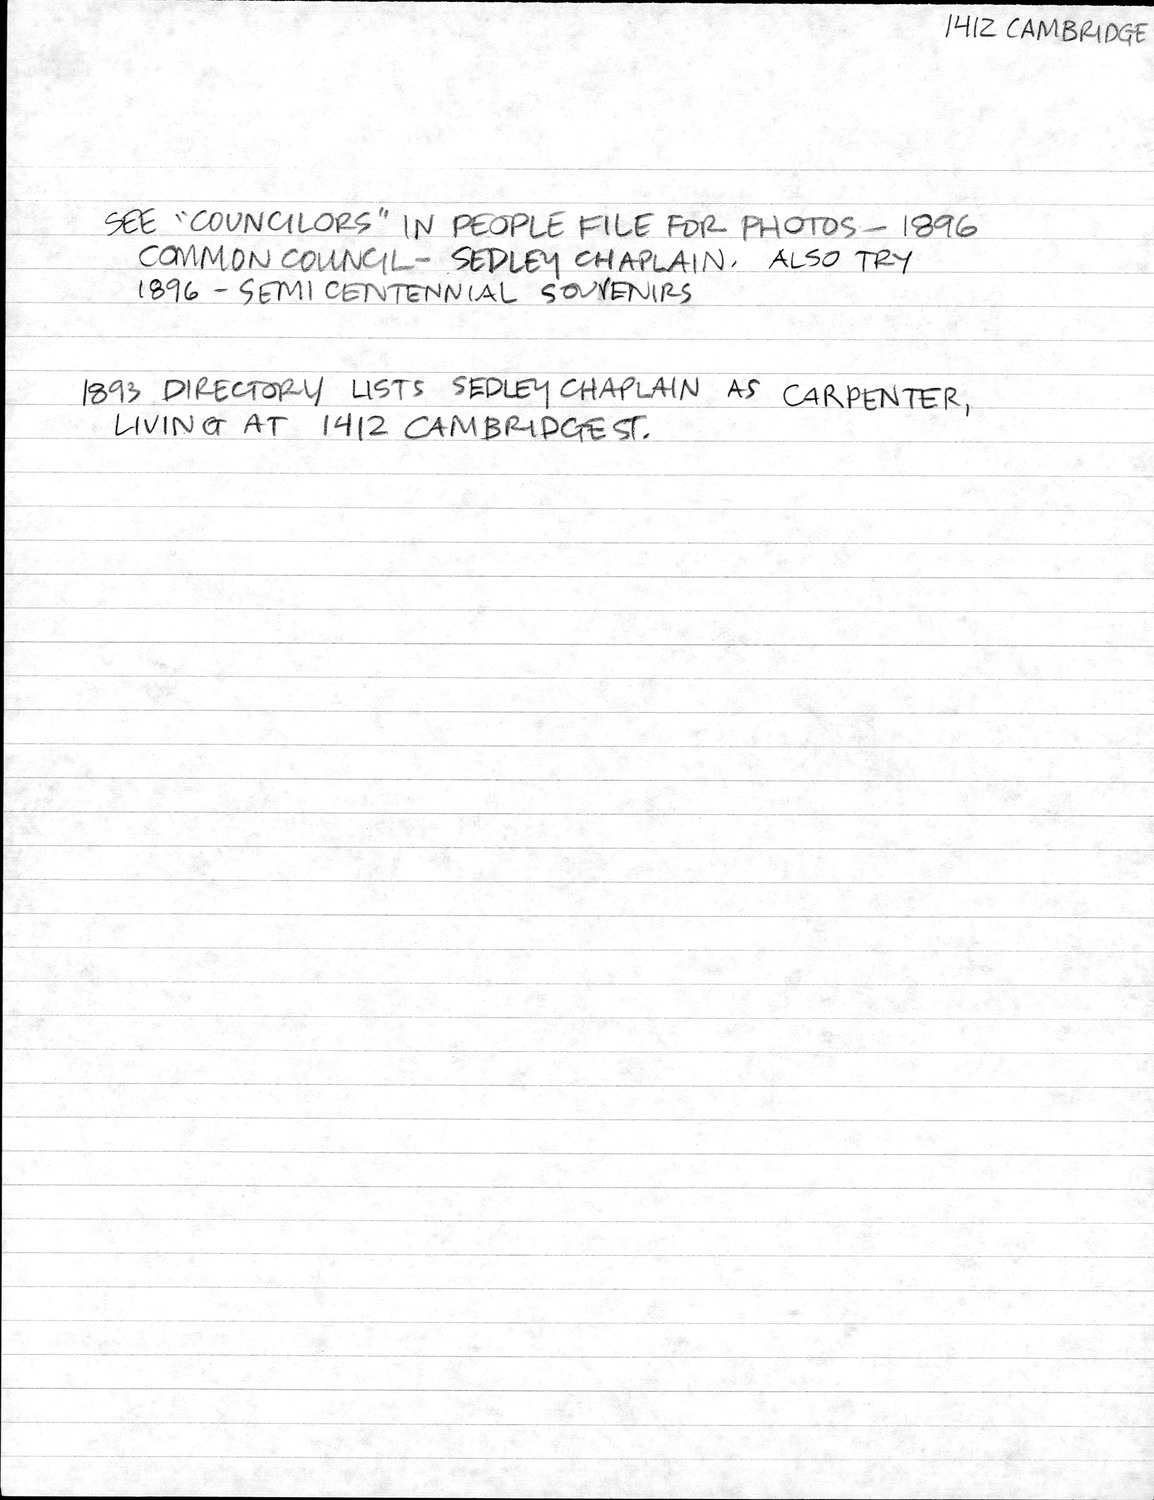 1412 CAMBRIDGE
SEE "COUNCILORS" IN PEOPLE FILE FOR PHOTOS – 1896
COMMON COUNCIL – SEDLEY CHAPLAIN. ALSO TRY
1896 – SEMI CENTENNIAL SOUVENIRS
1893 DIRECTORY LISTS SEDLEY CHAPLAIN AS CARPENTER,
LIVING AT 1412 CAMBRIDGE ST.